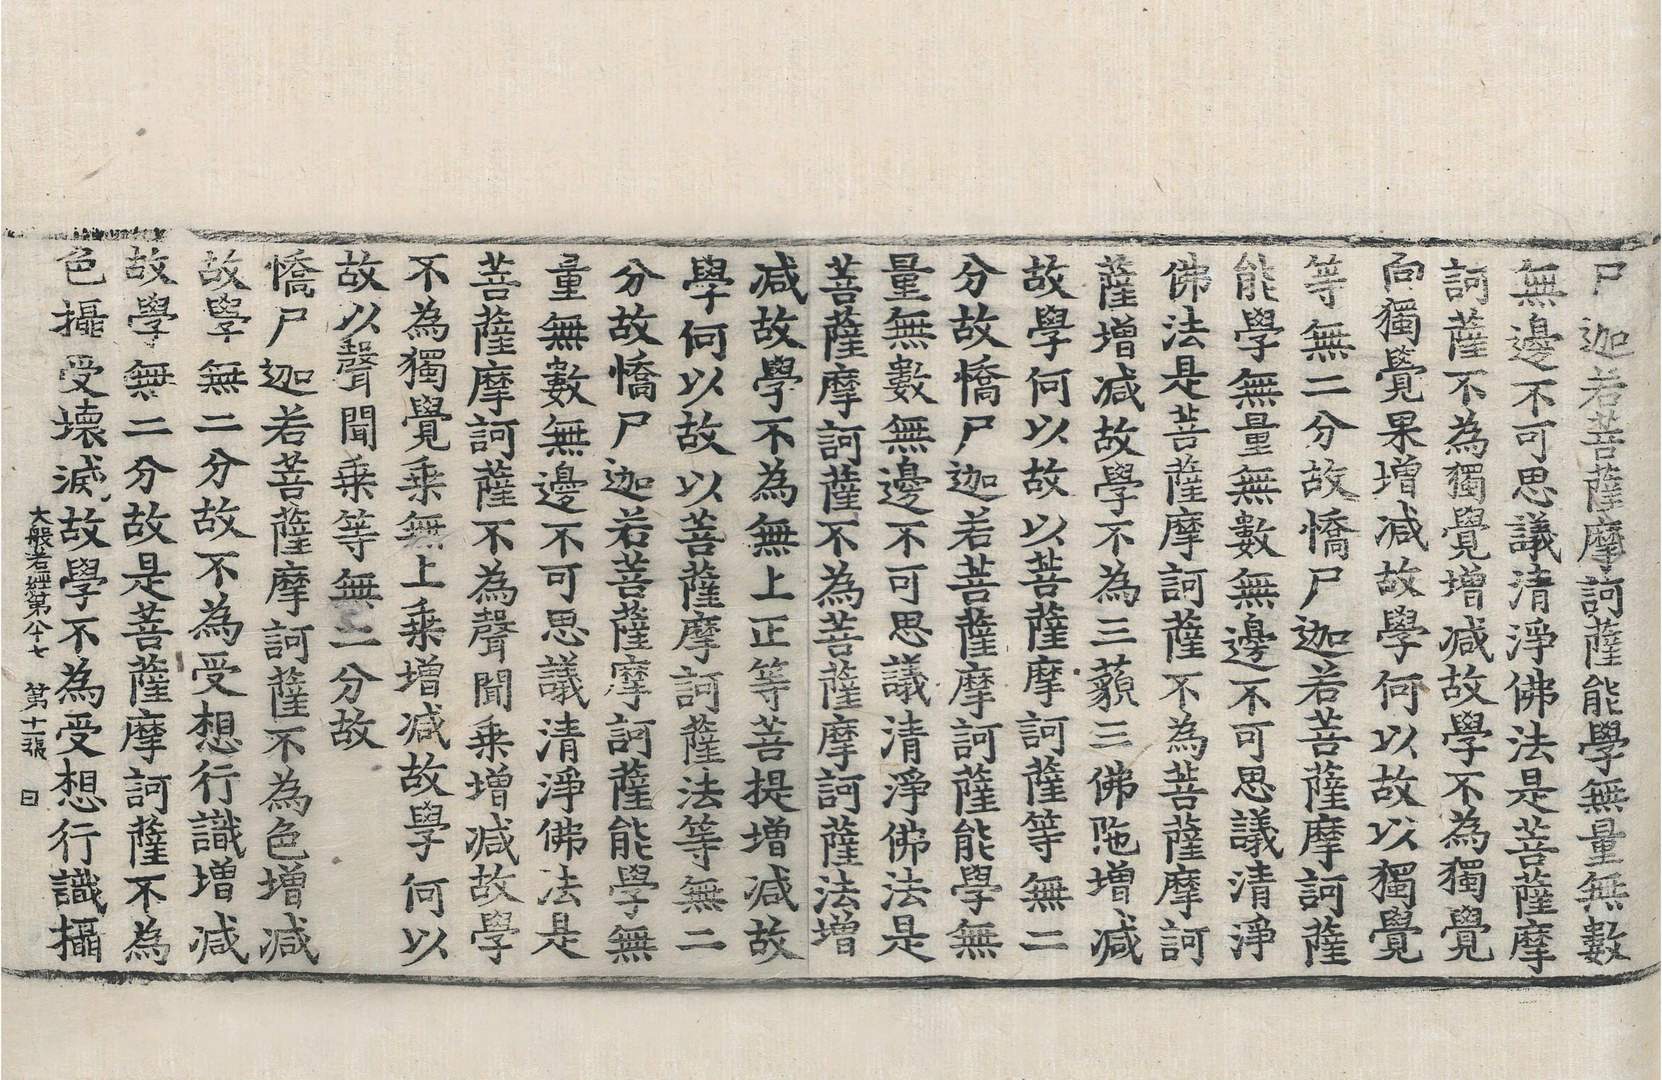 尸迦若菩薩摩訶薩能學無量無數
無邊不可思議清淨佛法是菩薩摩
訶薩不為獨覺增减故學不為獨覺
向獨覺果增减故學何以故以獨覺
等無二分故憍尸迦若菩薩摩訶薩
能學無量無數無邊不可思議清淨
佛法是菩薩摩訶薩不為菩薩摩訶
薩增减故學不為三藐三佛陁增减
故學何以故以菩薩摩訶薩等無二
分故憍尸迦若菩薩摩訶薩能學無
量無數無邊不可思議清淨佛法是
菩薩摩訶薩不為菩薩摩訶薩法增
减故學不為無上正等菩提增减故
學何以故以菩薩摩訶薩法等無二
分故憍尸迦若菩薩摩訶薩能學無
量無數無邊不可思議清淨佛法是
菩薩摩訶薩不為聲聞乘增减故學
不為獨覺乘無上乘增减故學何以
故以聲聞乘等無二分故
憍尸迦若菩薩摩訶薩不為色增减
故學無二分故不為受想行識增减
故學無二分故是菩薩摩訶薩不為
色攝受壞滅故學不為受想行識攝
大般若經第八十七 第十一張 日